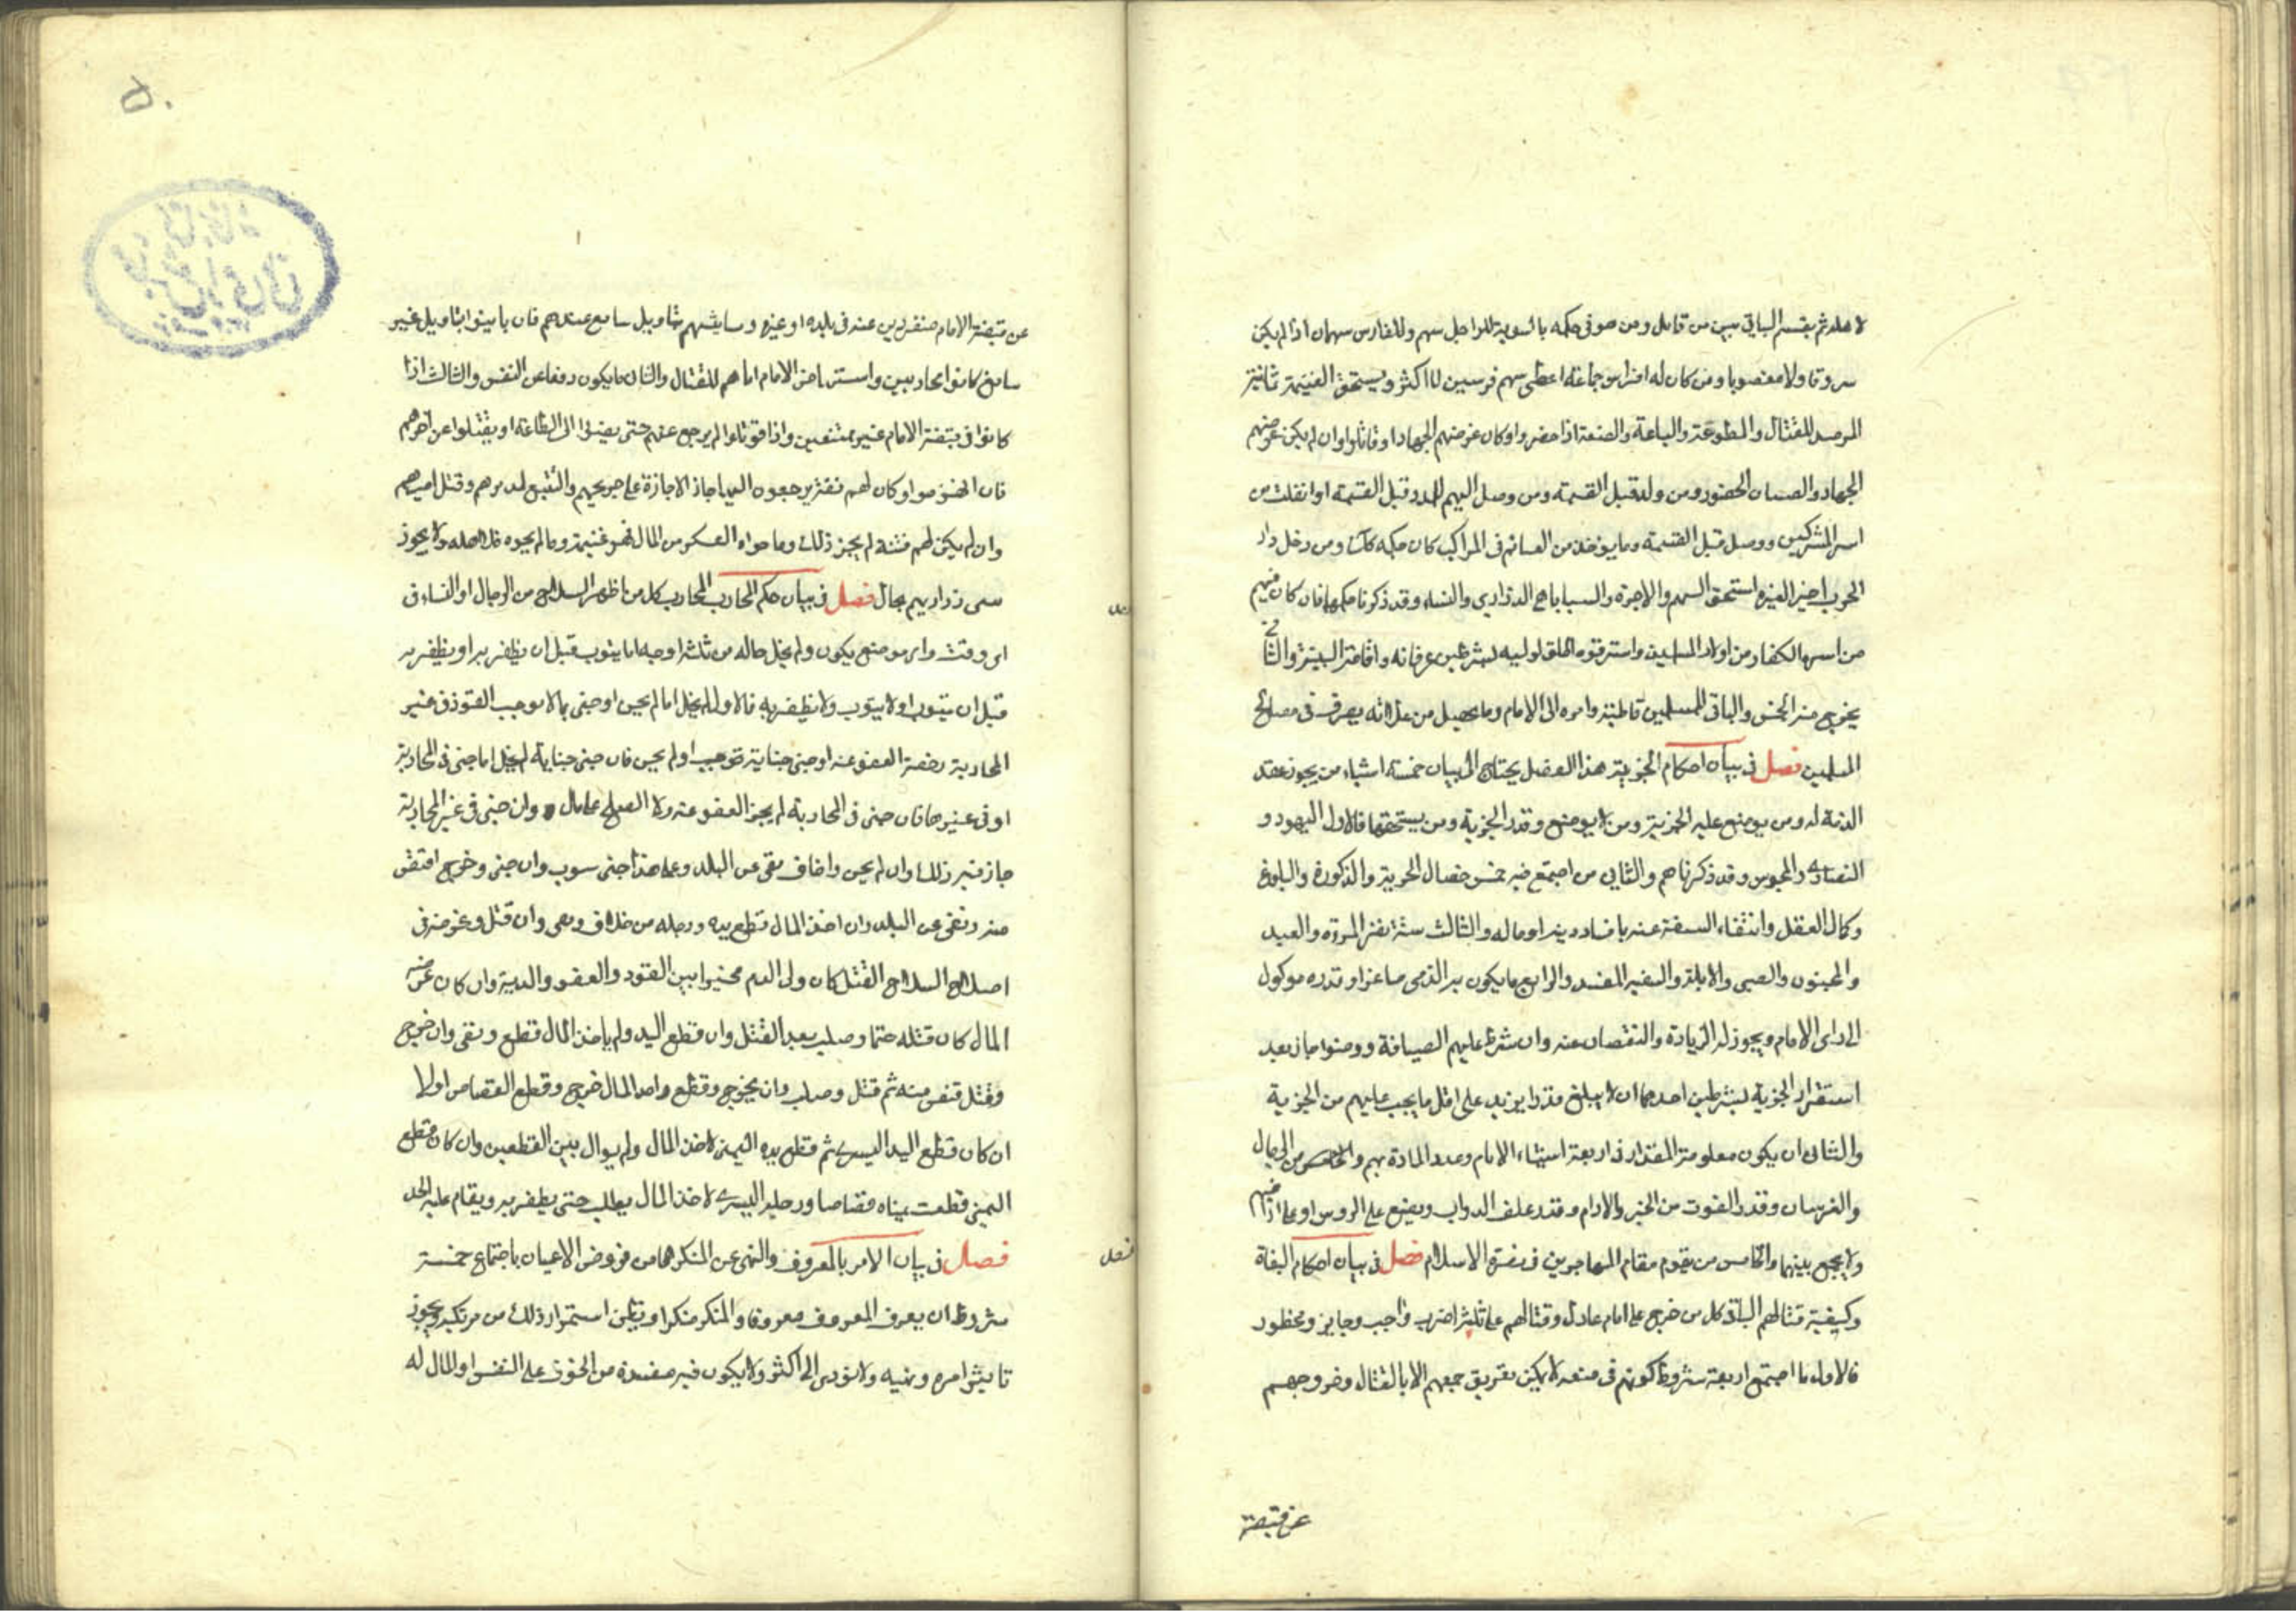 لاهله ثم يقسم الباقي بين من قاتل ومن هو في حكمه بالسوية للراجل سهم وللفارس سهمان اذا لم يكن
سروقا ولا مغصوبا ومن كان له افراس جماعة اعطى سهم فرسين لا اكثر ويستحق الغنيمة ثانية
المرصد للقتال والمطوعة والباعة والصنعة اذا حضروا وكان غرضهم الجهاد او قاتلوا وان لم يكن غرضهم
الجهاد والصبيان الحضور ومن ولد قبل القسمة ومن وصل اليهم للمدد قبل القسمة او انفلت من
اسر المشركين ووصل قبل القسمة وما يوخذ من الغنائم في المراكب كان حكمه كذلك ومن دخل دار
الحرب اجيرا لغيره استحق السهم والاجرة والسبايا هم الذراري والنساء وقد ذكرنا حكمها فان كان فيهم
من اسره الكفار من اولاد المسلمين واسترقوه اطلق لوليه بشرطين عرفانه واقامة البينة والثاني
يخرج منه الخمس والباقي للمسلمين قاطبة وامره الى الامام وما يحصل من غلاته يصرف في مصالح
المسلمين فصل في بيان احكام الجزية هذا الفصل يحتاج الى بيان خمسة اشياء من يجوز عقد
الذمة له ومن يوضع عليه الجزية ومن لا يوضع وقدر الجزية ومن يستحقها فالاول اليهود و
النصارى والمجوس وقد ذكرناهم والثاني من اجتمع فيه خمس خصال الحرية والذكورة والبلوغ
وكمال العقل وانتفاء السفه عنه بافساد دينه او ماله والثالث ستة نفر المرءة والعبد
والمجنون والصبي والابله والسفيه المفسد والرابع ما يكون به الذمي صاغرا وقدره موكول
الى راى الامام ويجوز له الزيادة والنقصان عنه وان شرط عليهم الضيافة ووضعوا جاز بعد
استقرار الجزية بشرطين احدهما ان لا يبلغ قدرا يزيد على اقل ما يجب عليهم من الجزية
والثاني ان يكون معلومة المقدار في اربعة اشياء الايام وعدد المادة بهم والخاص من الرجال
والفرسان وقدر القوت من الخبز والادام وقدر علف الدواب ويضع على الروس او على اراضيهم
ولا يجمع بينهما والخامس من يقوم مقام المهاجرين في نصرة الاسلام فصل في بيان احكام البغاة
وكيفية قتالهم الباغي كل من خرج على امام عادل وقتالهم على ثلثة اضرب واجب وجايز ومحظور
فالاول ما اجتمع اربعة شروط كونهم في منعة لا يمكن تفريق جمعهم الا بالقتال وخروجهم
عن قبضة
٥٠
عن قبضة الامام منفردين عنه في بلده او غيره ومباينتهم بتاويل سايغ عندهم فان باينوا بتاويل غير
سايغ كانوا محاربين واستنهاض الامام اياهم للقتال والثاني ما يكون دفعا عن النفس والثالث اذا
كانوا في قبضة الامام غير ممتنعين واذا قوتلوا لم يرجع عنهم حتى يفيئوا الى الطاعة او يقتلوا عن اخرهم
فان انهزموا وكان لهم نفر يرجعون اليها جاز الاجازة على جريحهم والتتبع لمدبرهم وقتل اسيرهم
وان لم يكن لهم فئة لم يجز ذلك وما حواه العسكر من المال فهو غنيمة وما لم يحوه فلاهله ولا يجوز
سبى ذراريهم بحال فصل في بيان حكم المحارب المحارب كل من اظهر السلاح من الرجال او النساء في
اى وقت واى موضع يكون ولم يخل حاله من ثلثة اوجه اما يتوب قبل ان يظفر به او يظفر به
قبل ان يتوب او لا يتوب ولا يظفر به فالاول لم يخل اما لم يجن او جنى بما لا يوجب القود في غير
المحاربة رخصة العفو عنه او جنى جناية توجب او لم يجن فان جنى جناية لم يخل اما جنى في المحاربة
او في غيرها فان جنى في المحاربة لم يجز العفو عنه ولا الصلح على مال وان جنى في غير المحاربة
جاز فيه ذلك وان لم يجن واخاف نفى عن البلد وعلى هذا حتى يتوب وان جنى وخرج اقتص
منه ونفى عن البلد وان اخذ المال قطع يده ورجله من خلاف ونفى وان قتل وغرضه في
اصلاح السلاح القتل كان ولى الدم مخيرا بين القود والعفو والدية وان كان غرضه
المال كان قتله حتما وصلب بعد القتل وان قطع اليد ولم ياخذ المال قطع ونفى وان جرح
وقتل اقتص منه ثم قتل وصلب وان يجرح وقطع واخذ المال جرح وقطع القصاص اولا
ان كان قطع اليد اليسرى ثم قطع يده اليمنى لاخذ المال ولم يوال بين القطعين وان كان قطع
اليمنى قطعت يمناه قصاصا ورجله اليسرى لاخذ المال يطلب حتى يظفر به ويقام عليه الحد
فصل في بيان الامر بالمعروف والنهى عن المنكر هما من فروض الاعيان باجتماع خمسة
شروط ان يعرف المعروف معروفا والمنكر منكرا ويظن استمرار ذلك من مرتكبه ويجوز
تاثير امره ونهيه ولا يؤدى الى اكثر ولا يكون فيه مفسدة من الخوف على النفس او المال له
فصل
فصل